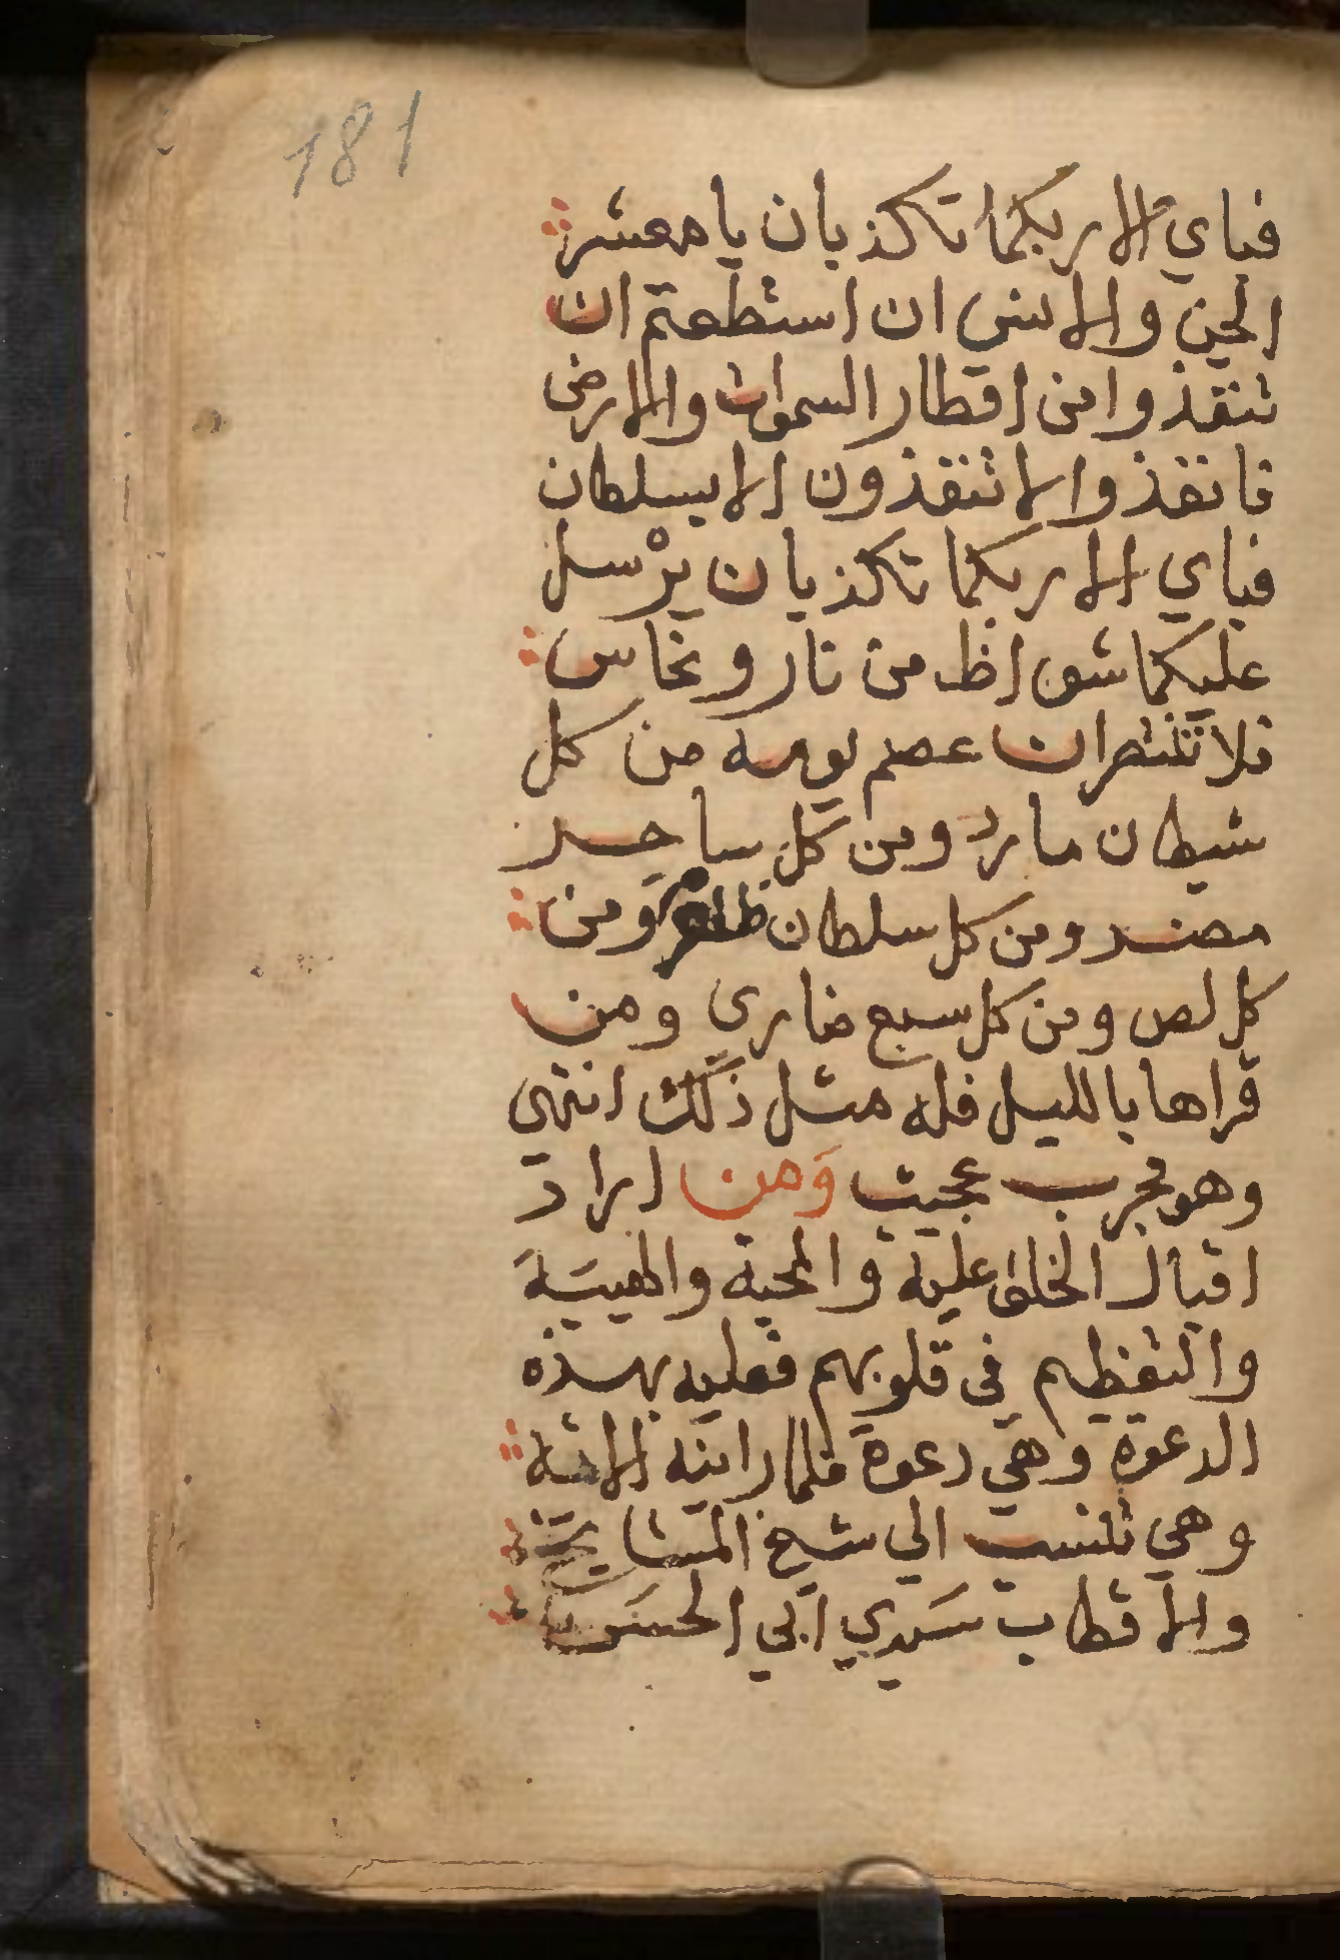 181
فباي الا ربكما تكذبان يا معشر
الجن والانس ان استطعتم ان
تنفذوا من اقطار السموات والارض
فانفذوا لا تنفذون الا بسلطان
فباي الا ربكما تكذبان يرْسل
عليكما شواظ من نار ونحاس
فلا تنتصران عصم يومه من كل
شيطان مارد ومن كل ساحر
مضر ومن كل سلطان ومن
كل لص ومن كل سبع ضاري ومن
قراها بالليل فله مثل ذلك انتهى
وهو مجرب عجيب وَمن اراد
اقبال الخلق عليه والمحبة والهيبة
والتعظيم في قلوبهم فعليه بهذه
الدعوة وهي دعوة فلما راينه
وهي تنسب الي شيخ المشايخ
والاقطاب سيدي ابي الحسن